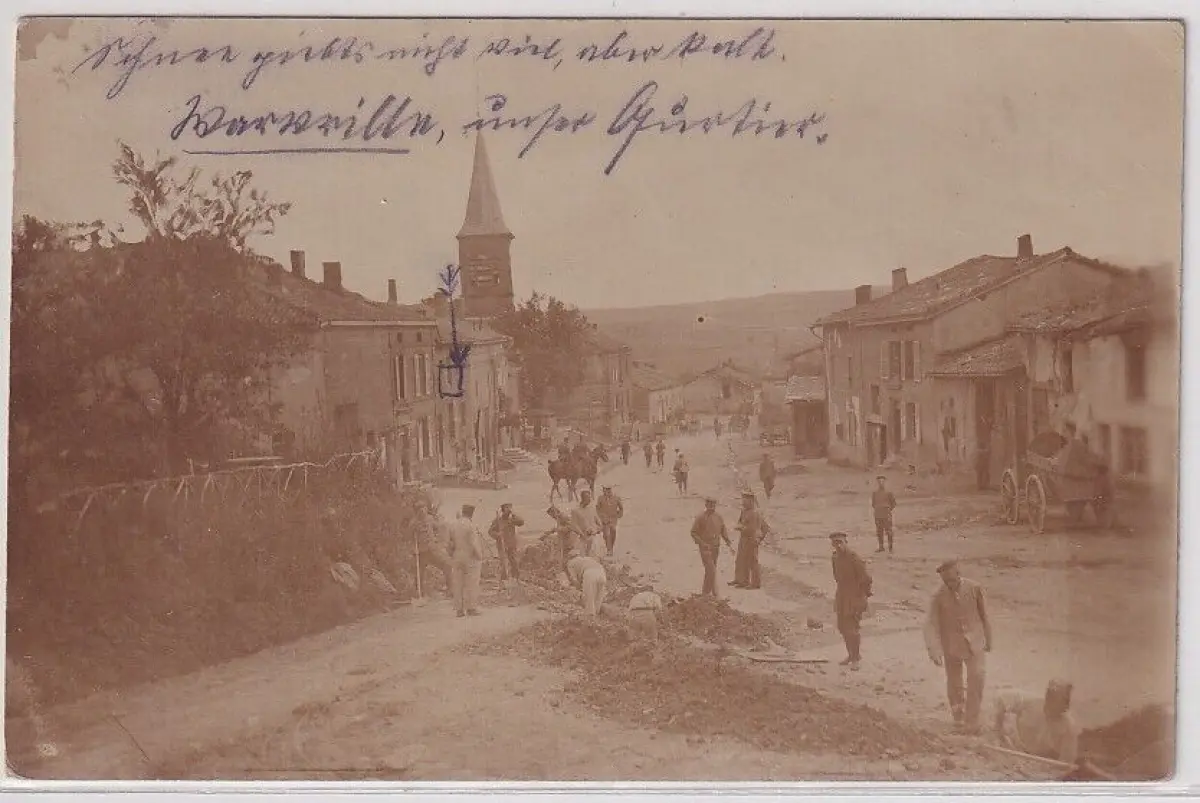 Schnee giebts nicht viel, aber kalt.
Warville, unser Qurtier.